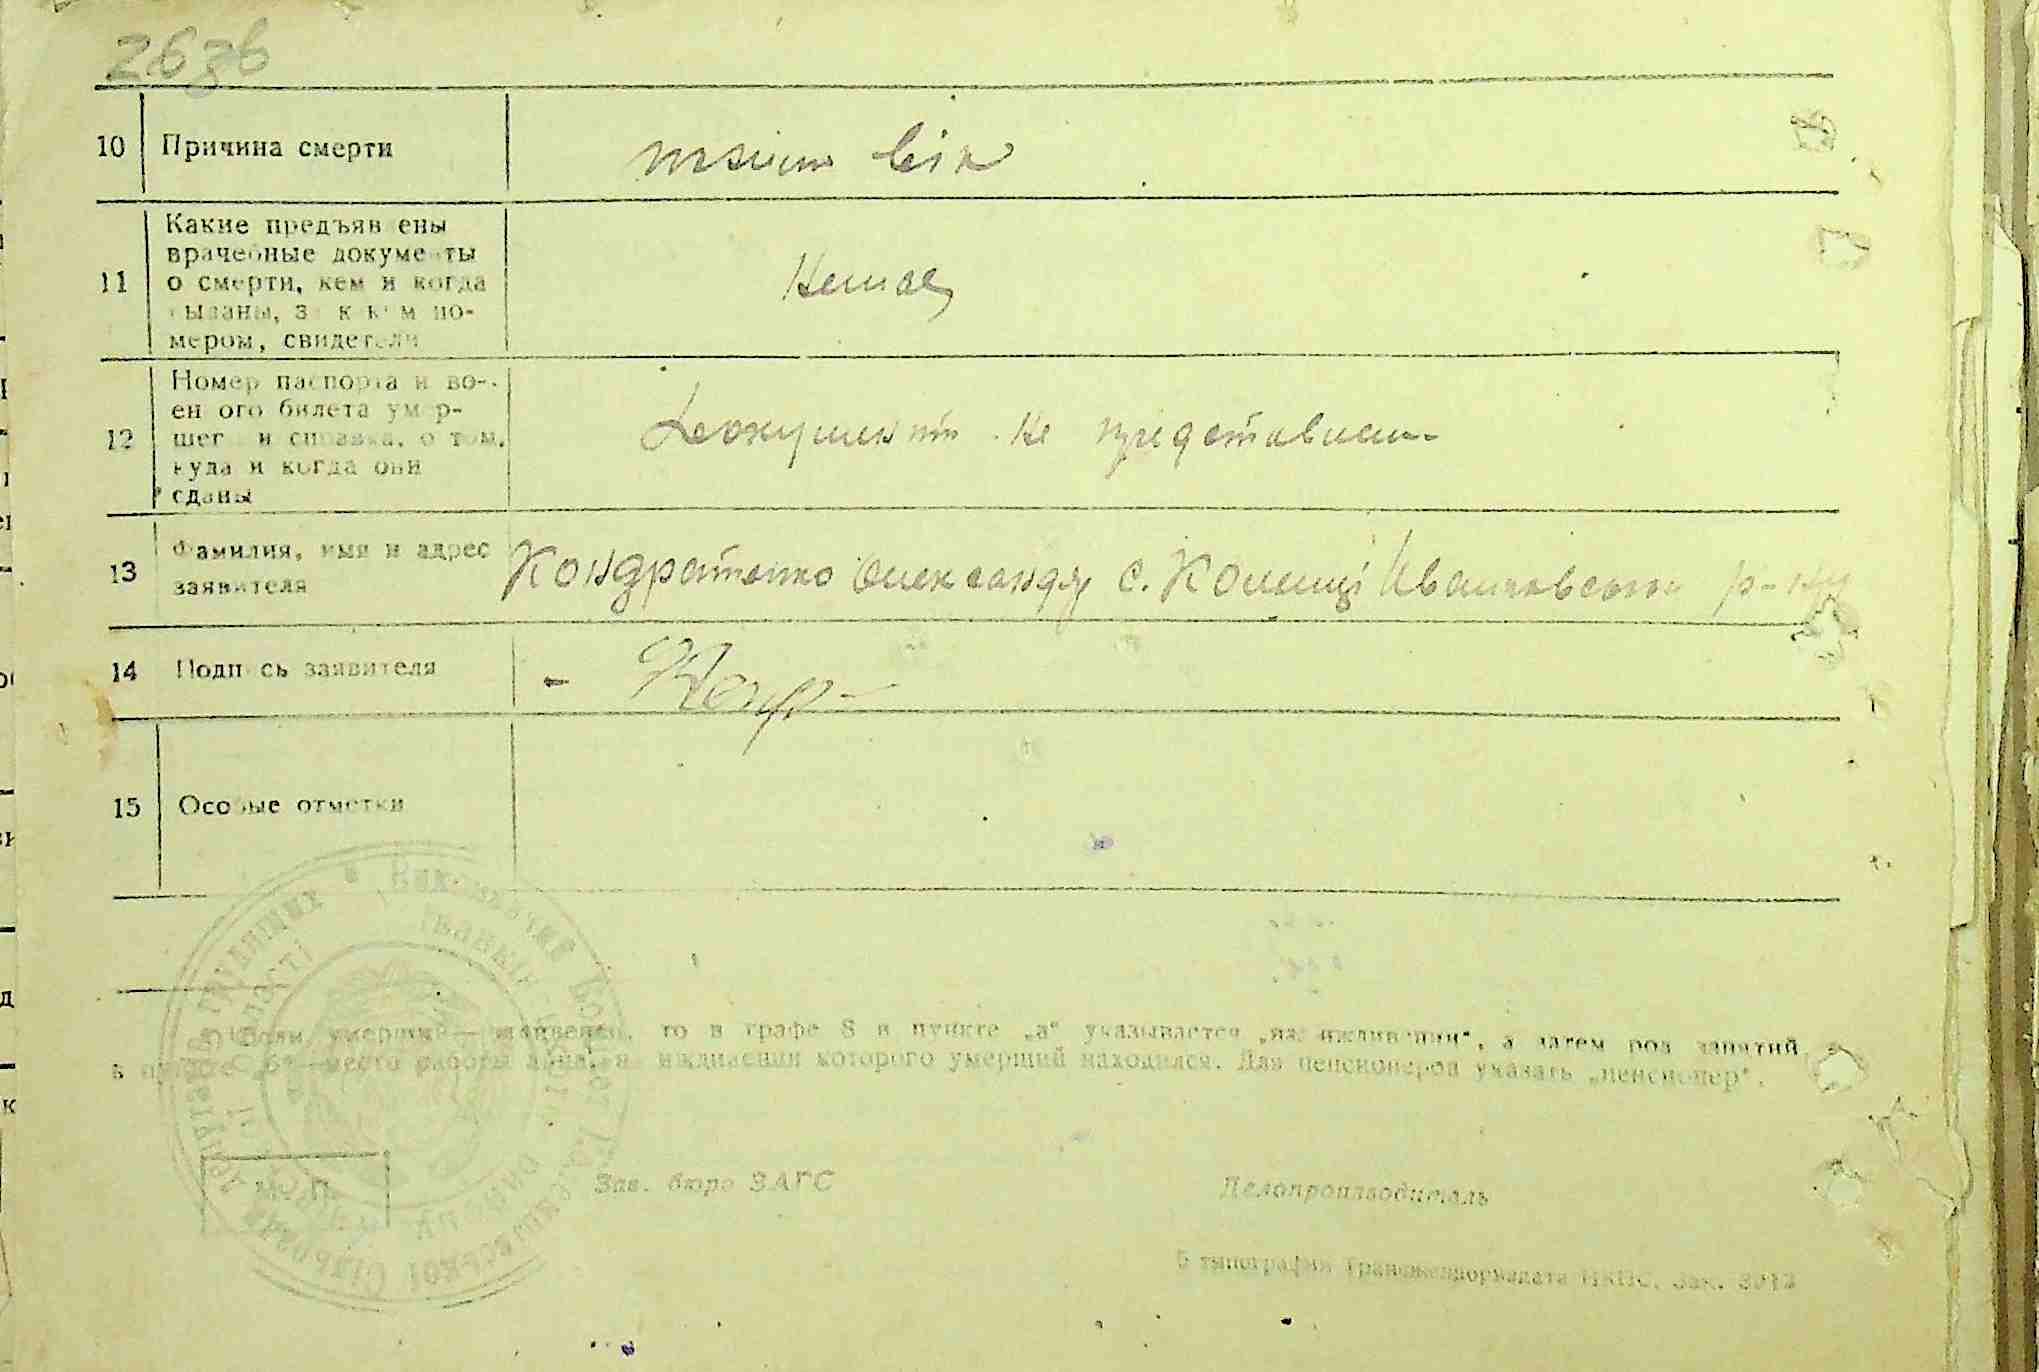 2636
10 Причина смерти
вік
11 Какие предъявлены
врачебные документы
о смерти, кем и когда
выданы, за каким но-
мером, свидетели
Немає
12 Номер паспорта и во-
енного билета умер-
шего и справка, о том,
куда и когда они
сданы
Документи не представлени
13 Фамилия, имя и адрес
заявителя
Кондратенко Олександр с. Коленці Іванковського р-ну
14 Подпись заявителя
15 Особые отметки
Если умерший — иждивенец, то в графе 8 в пункте „а“ указывается „на иждивении“, а затем род занятий,
в пункте „б“ —место работы лица, на иждивении которого умерший находился. Для пенсионеров указать „пенсионер“.
М. П.
Зав. бюро ЗАГС
Делопроизводитель
типография Трансжелдориздата НКПС. Зак.